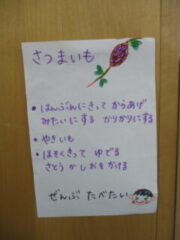 さつまいも
• はんぶんにきって からあげ
みたいにする かりかりにする
• やきいも
• ほそくきって ゆでる
さとう か しおをかける
ぜんぶ たべたい